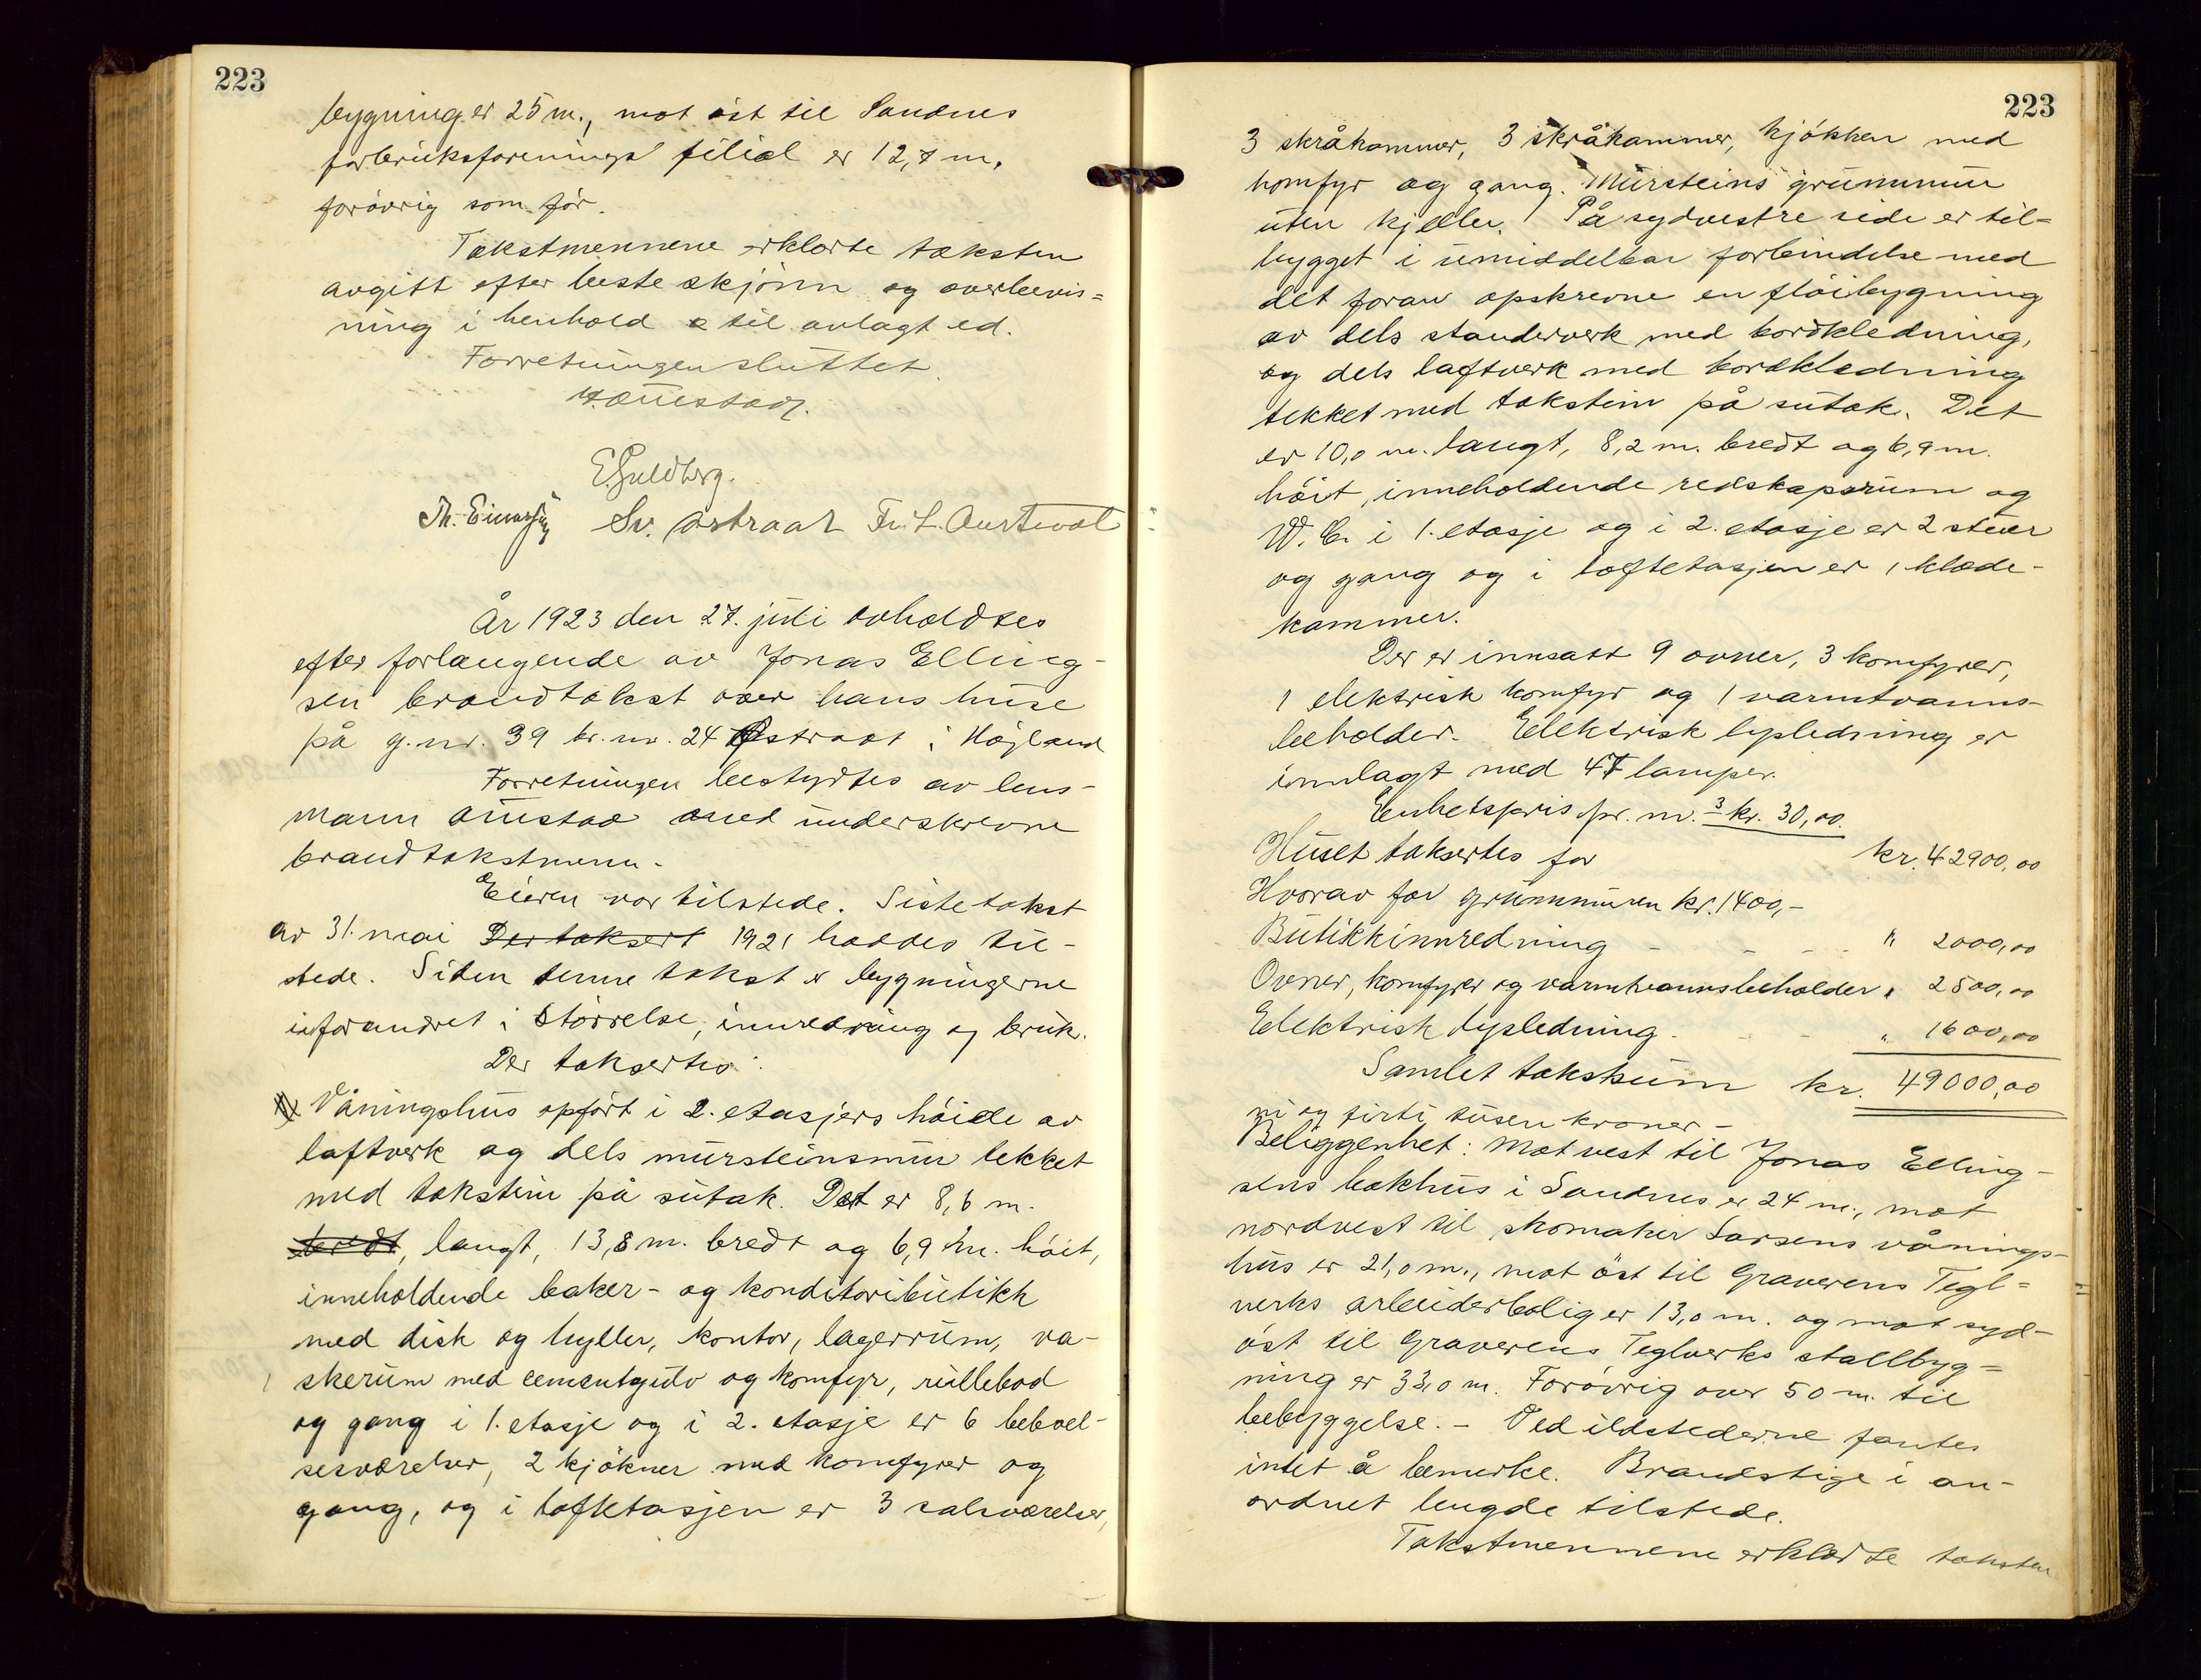 223
bygning er 25 m., mot øst til Sandnes
forbruksforenings filial er 12,7 m.
forøvrig som før.
Takstmennene erklærte taksten
avgitt efter beste skjønn og overbevis=
ning i henhold til avlagt ed.
Forretningen sluttet.
Auestad.
E. Guldberg.
Th. Einarsen Sv. Astraat Fr. L. Austvol
År 1923 den 27. juli avholdtes
efter forlangende av Jonas Elling-
sen brandtakst over hans huse
på g.nr. 39 br. nr. 24 Østraat i Høyland
Forretningen bestyrtes av lens-
mann Auestad med underskrevne
brandtakstmenn.
Eieren var tilstede. Siste takst
av 31. mai Der taksert 1921 haddes til-
stede. Siden denne takst er bygningerne
uforandret i størrelse, innredning og bruk.
Der takserttes:
1) Våningshus opført i 2. etasjers høide av
laftverk og dels mursteinsmur tekket
med takstein på sutak. Det er 8,6 m.
bredt, langt, 13,8 m. bredt og 6,9 m. høit,
inneholdende baker- og konditoributikk
med disk og hyller, kontor, lagerrum, va-
skerum med cementgulv og komfyr, rullebod
og gang i 1. etasje og i 2. etasje er 6 beboel-
sesværelser, 2 kjøkner med komfyrer og
gang, og i loftetasjen er 3 salsværelser,
223
3 skråkammer, 3 skråkammer, kjøkken med
komfyr og gang. Mursteins grunnmur
uten kjeller. På sydvestre side er til=
bygget i umiddelbar forbindelse med
det foran opskrevne en fløibygning
av dels standerverk med bordkledning,
og dels laftverk med bordkledning
tekket med takstein på sutak. Det
er 10,0 m. langt, 8,2 m. bredt og 6,9 m.
høit, inneholdende redskapsrum og
W.C. i 1. etasje og i 2. etasje er 2 stuer
og gang og i loftetasjen er 1 klæde-
kammer.
Der er innsatt 9 ovner, 3 komfyrer,
1 elektrisk komfyr og 1 varmtvanns-
beholder. Elektrisk lysledning er
innlagt med 47 lamper.
Enhetspris pr. m.³ kr. 30,00.
Huset takserttes for kr. 42900,00
Hvorav for grunnmuren kr. 1400,-
Butikkinnredning - - - - " 2000,00
Ovner, komfyrer og varmtvannsbeholder " 2500,00
Elektrisk lysledning - - - " 1600,00
Samlet takstsum kr. 49000,00
ni og firti tusen kroner -
Beliggenhet: Mot vest til Jonas Elling-
sens bakhus i Sandnes er 24 m., mot
nordvest til skomaker Larsens vånings-
hus er 21,0 m., mot øst til Graverens Tegl=
verks arbeiderbolig er 13,0 m. og mot syd-
øst til Graverens Teglverks stallbyg=
ning er 33,0 m. Forøvrig over 50 m. til
bebyggelse. - Ved ildstederne fantes
intet å bemerke. Brandstige i an-
ordnet lengde tilstede.
Takstmennene erklærte taksten